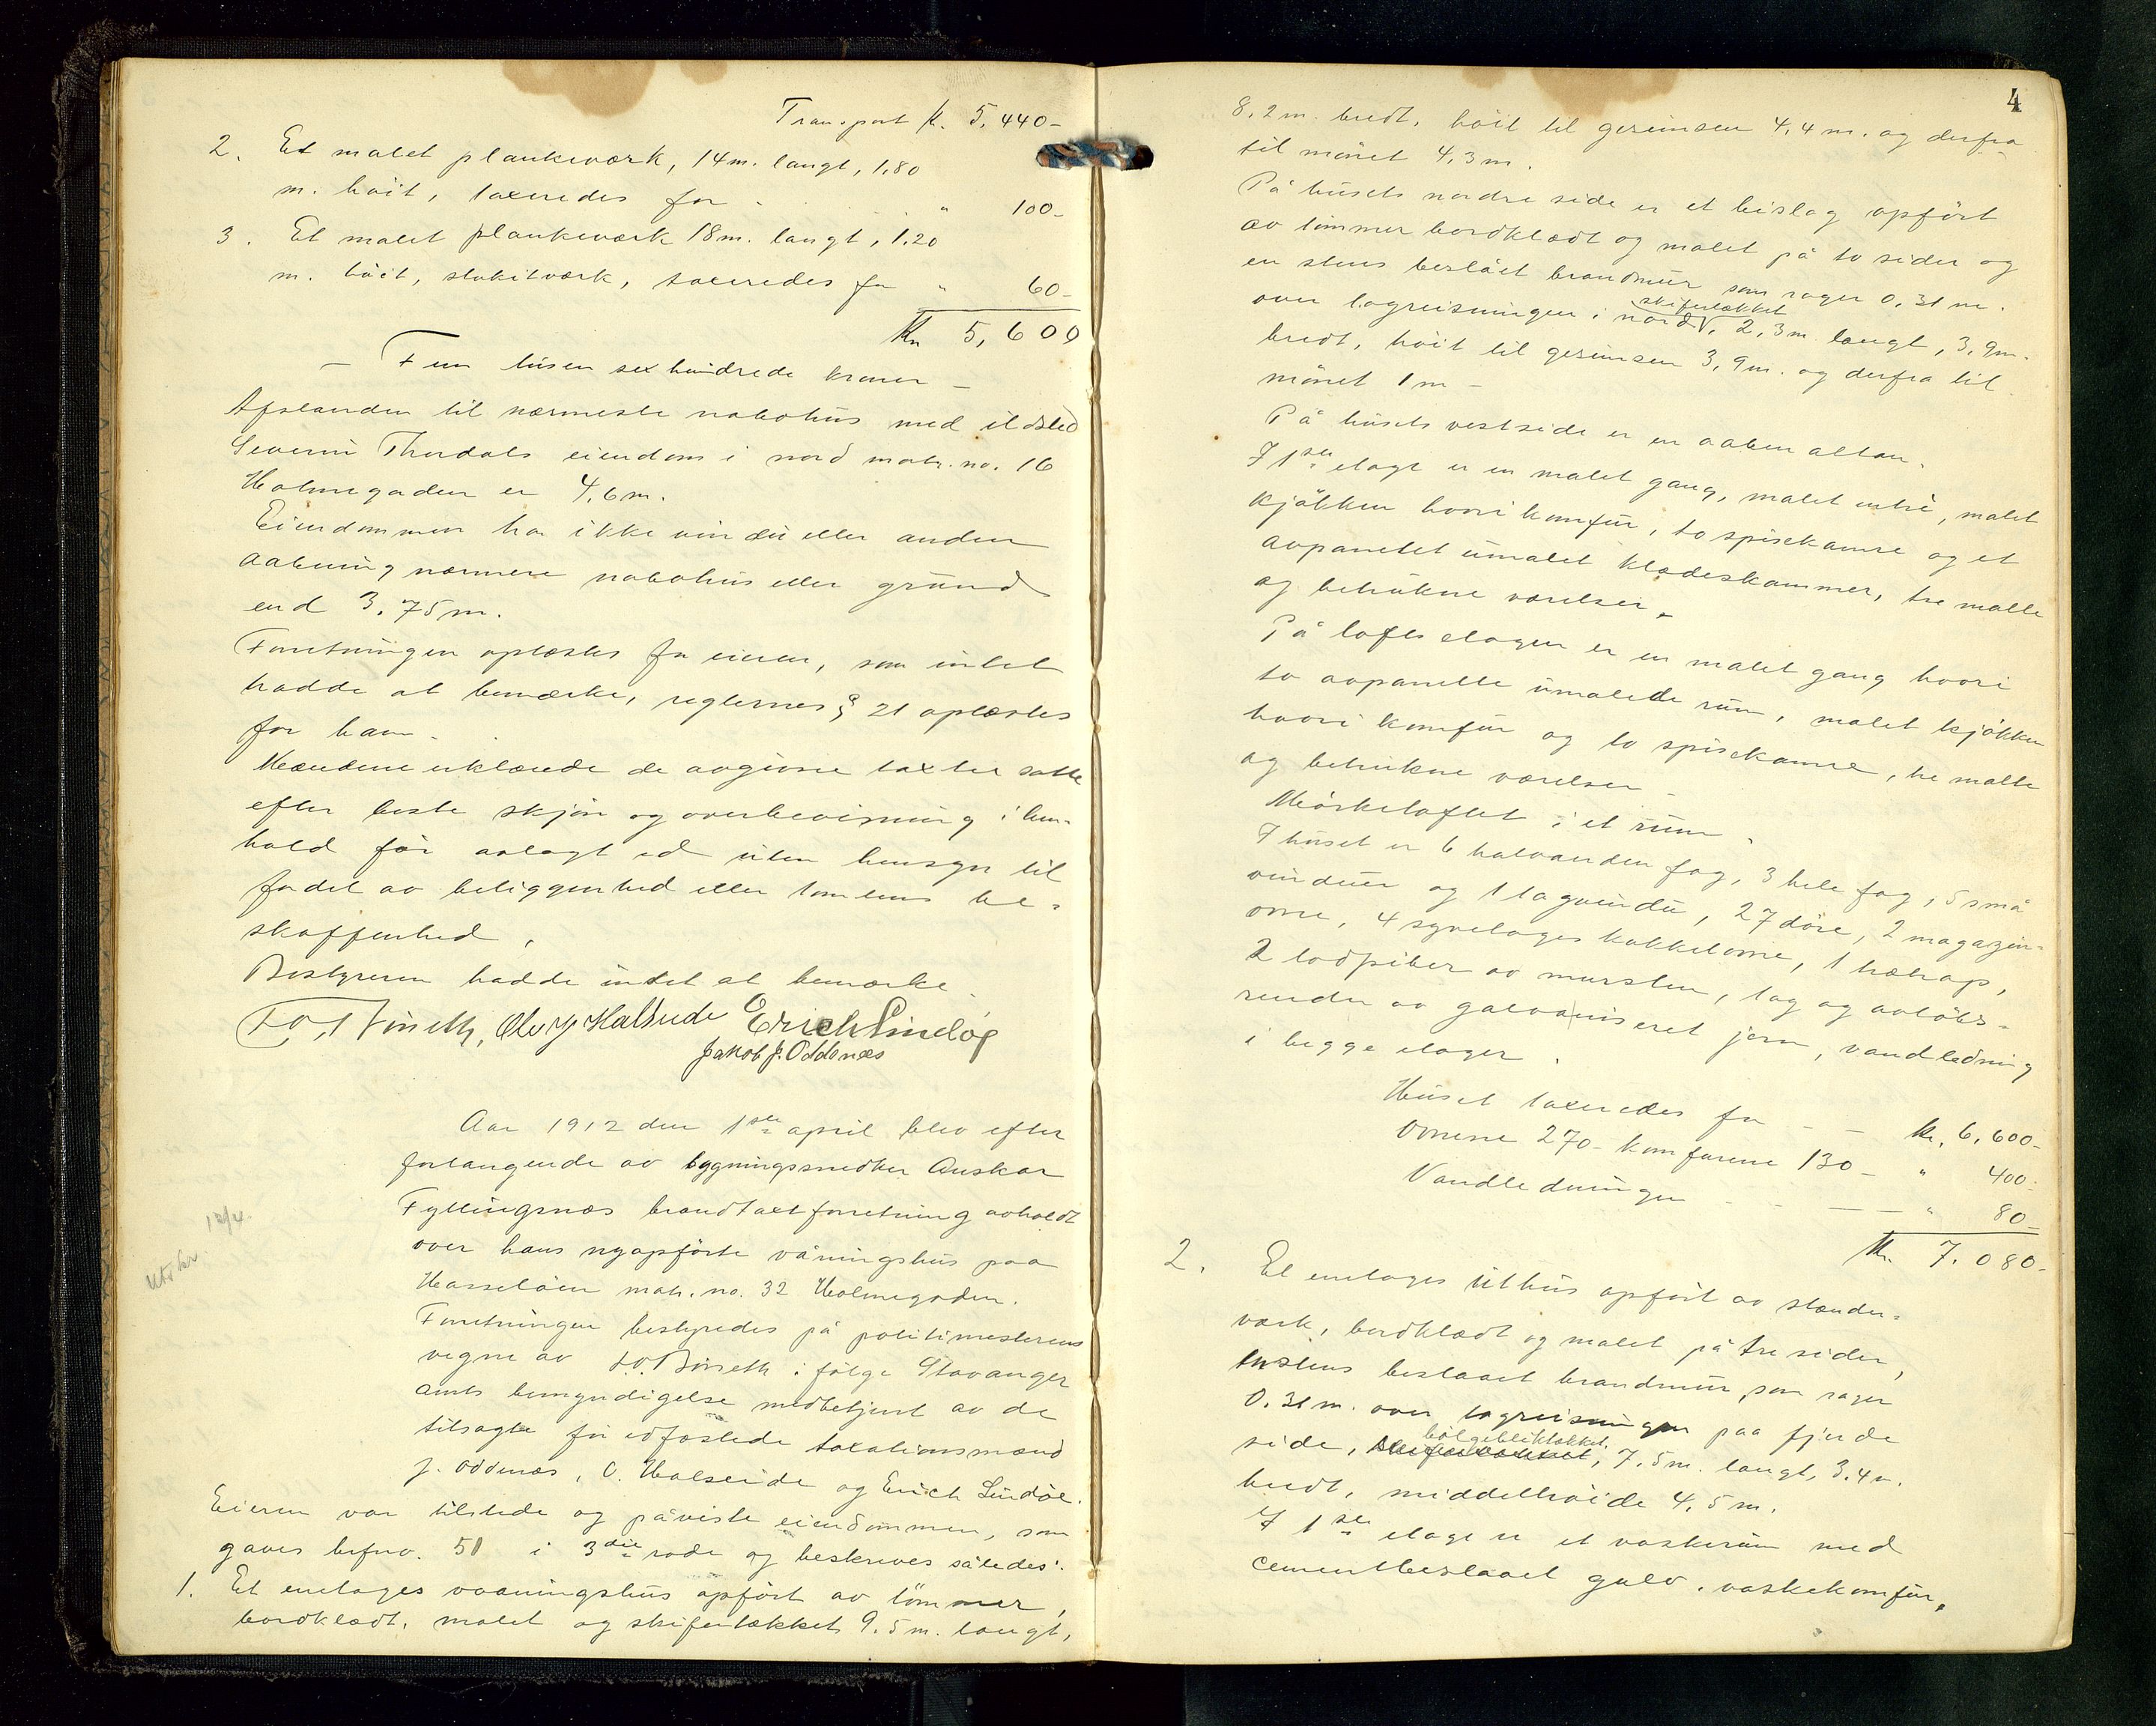 Transport k. 5,440-
2. Et malet plankeværk, 14 m. langt, 1,80
m. høit, taxeredes for - " 100-
3. Et malet plankeværk 18 m. langt, 1,20
m. høit, stakitværk, taxeredes for " 60-
Kr 5,600
- Fem tusen sex hundrede kroner -
Afstanden til nærmeste nabohus med ildsted
Severin Thordals eiendom i nord matr. no. 16
Holmegaden er 4,6 m.
Eiendommen har ikke vindu eller anden
aabning nærmere nabohus eller grund
end 3,75 m.
Forretningen oplæstes for eieren, som intet
hadde at bemærke, reglernes § 21 oplæstes
for ham.
Mændene erklærede de avgivne taxter satte
efter beste skjøn og overbevisning i hen-
hold før avlagt ed uten hensyn til
fordel av beliggenhed eller tomtens be-
skaffenhed.
Bestyreren hadde intet at bemærke.
Ole J Halseide Erich Lindøe
Jakob J. Oddenæs
Aar 1912 den 1ste april blev efter
forlangende av bygningssnedker Anskar
Fyllingsnæs brandtaxtforretning avholdt
over hans nyopførte våningshus paa
Hasseløen matr. no. 32 Holmegaden.
Forretningen bestyredes på politimesterens
vegne av i følge Stavanger
amts bemyndigelse medbetjent av de
tilsagte før edfæstede taxationsmænd
J. Oddenæs, O. Halseide og Erich Lindøe.
Eieren var tilstede og påviste eiendommen, som
gaves brfno. 51 i 3die rode og beskrives således:
1. Et enetages vaaningshus opført av tømmer,
bordklædt, malet og skifertækket 9.5 m. langt,
12/4.
4
8,2 m. bredt, høit til gesimsen 4,4 m. og derfra
til mønet 4,3 m.
På husets nordre side er et bislag opført
av tømmer bordklædt og malet på to sider og
en stens beslået brandmur som rager 0,31 m.
over tagreisningen i nord, skifertækket 2,3 m langt, 3,9 m.
bredt, høit til gesimsen 3,9 m. og derfra til
mønet 1 m -
På husets vestside er en aaben altan.
I 1ste etage er en malet gang, malet entré, malet
kjøkken hvori komfur, to spisekamre og et
avpanelet umalet klædeskammer, tre malte
og betrukne værelser.
På loftsetagen er en malet gang hvori
to avpanelte umalede rum, malet kjøkken
hvori komfur og to spisekamre, tre malte
og betrukne værelser -
Mørkeloftet i et rum.
I huset er 6 halvanden fag, 3 hele fag, 5 små
vinduer og 1 tagvindu, 27 døre, 2 magazin-
ovne, 4 syvetages kakkelovne, 1 hætrap,
2 lodpiber av mursten, tag og avløbs-
render av galvaniseret jern, vandledning
i begge etager.
Huset taxeredes for - - kr. 6,600-
Ovnene 270- komfurene 130- " 400-
Vandledningen - - " 80-
Kr. 7.080-
2. Et enetages uthus opført av stænder-
værk, bordklædt og malet på tre sider,
enstens beslaaet brandmur, som rager
0.31 m. over tagreisningen paa fjerde
side, bølgebliktækket, 7.5 m. langt, 3.4 m.
bredt, middelhøide 4.5 m.
I 1ste etage er et vaskerum med
cementbeslaaet gulv, vaskekomfur,